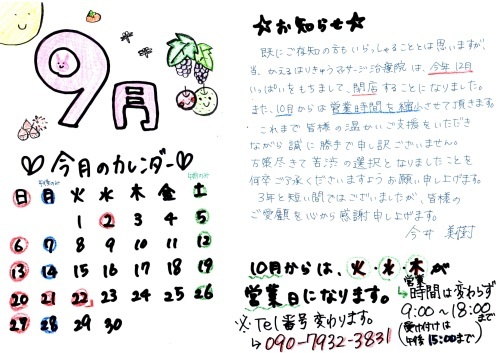 9月
♡今月のカレンダー♡
日 月 火 水 木 金 土
午前のみ
1 2 3 4 5
6 7 8 9 10 11 12
13 14 15 16 17 18 19
20 21 22 23 24 25 26
27 28 29 30
☆お知らせ☆
既にご存知の方もいらっしゃることとは思いますが、
当、かえるはりきゅうマッサージ治療院は、今年12月
いっぱいをもちまして、閉店することになりました。
また、10月からは営業時間を縮小させて頂きます。
これまで皆様の温かいご支援をいただき
ながら誠に勝手で申し訳ございません。
万策尽きて苦渋の選択となりましたことを
何卒ご了承くださいますようお願い申し上げます。
3年と短い間ではございましたが、皆様の
ご愛顧を心から感謝申し上げます。
今井 美樹
10月からは、火・水・木が
営業日になります。
営業
↳時間は変わらず
9:00〜18:00まで
(受け付けは
午後15:00まで)
※Tel番号変わります。
↳090-7932-3831